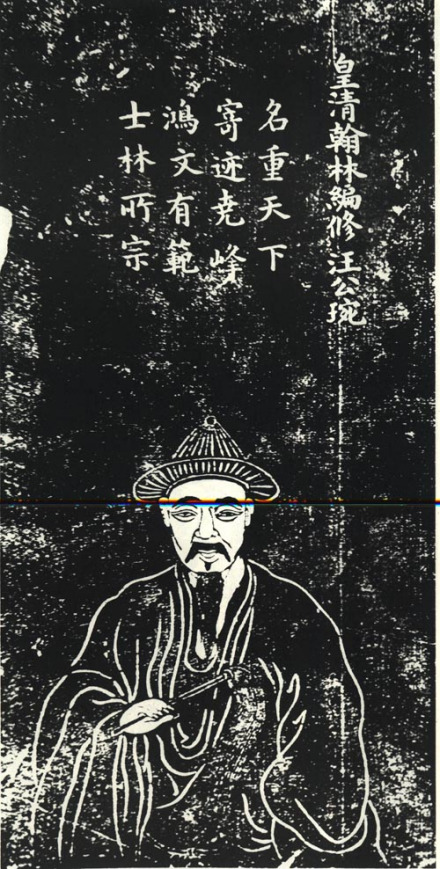 皇清翰林編修汪公琬
名重天下
寄迹堯峰
鴻文有範
士林所宗